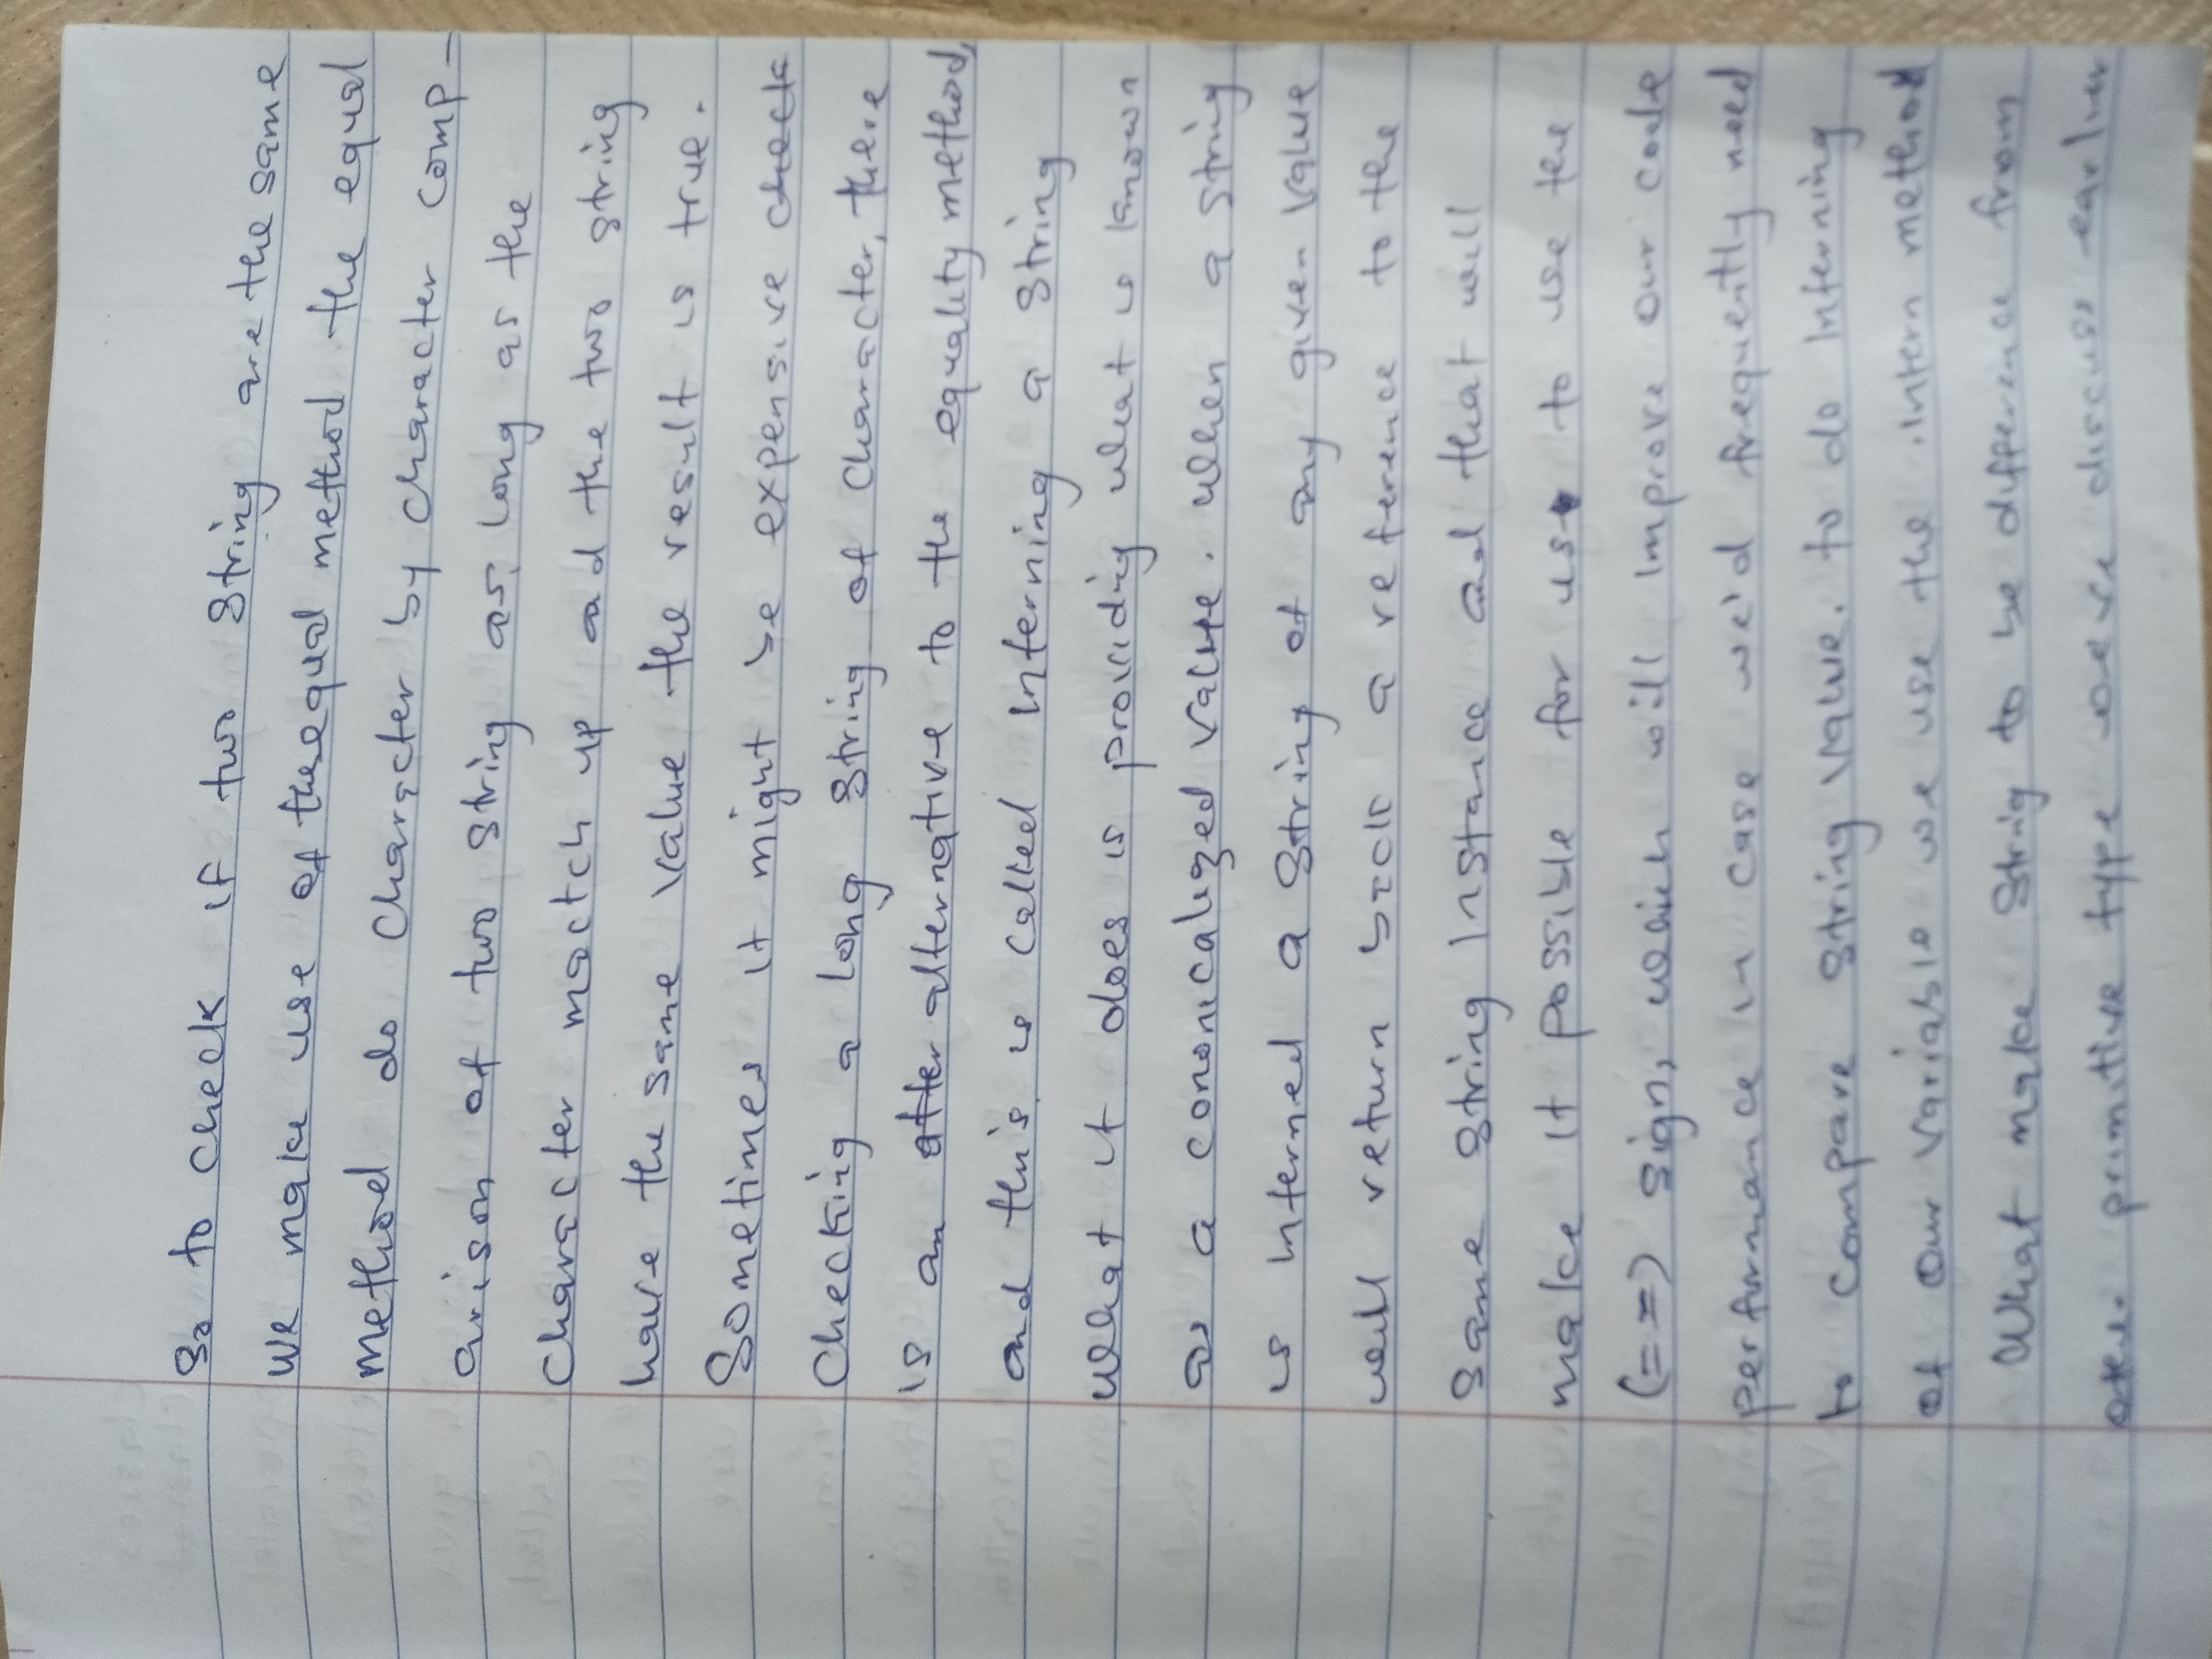 So to check if two string are the same
we make use of the equal method the equal
method do character by character comp-
arison of two string as long as the
character match up and the two string
have the same value the result is true.
Sometimes it might be expensive check
checking a long string of character, there
is an other alternative to the equality method,
and this is called interning a string
what it does is providing what is known
as a cononicalized value. when a string
is interned a string of any given value
will return back a reference to the
same string instance and that will
make it possible for us to use the
(==) sign, which will improve our code
performance in case we'd frequently need
to compare string value. to do interning
of our variable we use the .intern method
What make string to be difference from
other primitive type we've discuss earlier